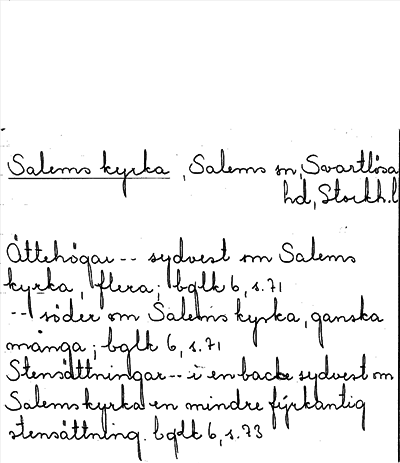 Salems kyrka, Salems sn, Svartlösa
hd, Stockh.l
Ättehögar -- sydvest om Salems
kyrka, flera; bglk 6, s.71
--- söder om Salems kyrka, ganska
många; bglk 6, s.71
Stensättningar -- i en backe sydvest om
Salems kyrka en mindre fyrkantig
stensättning. bglk 6, s.73